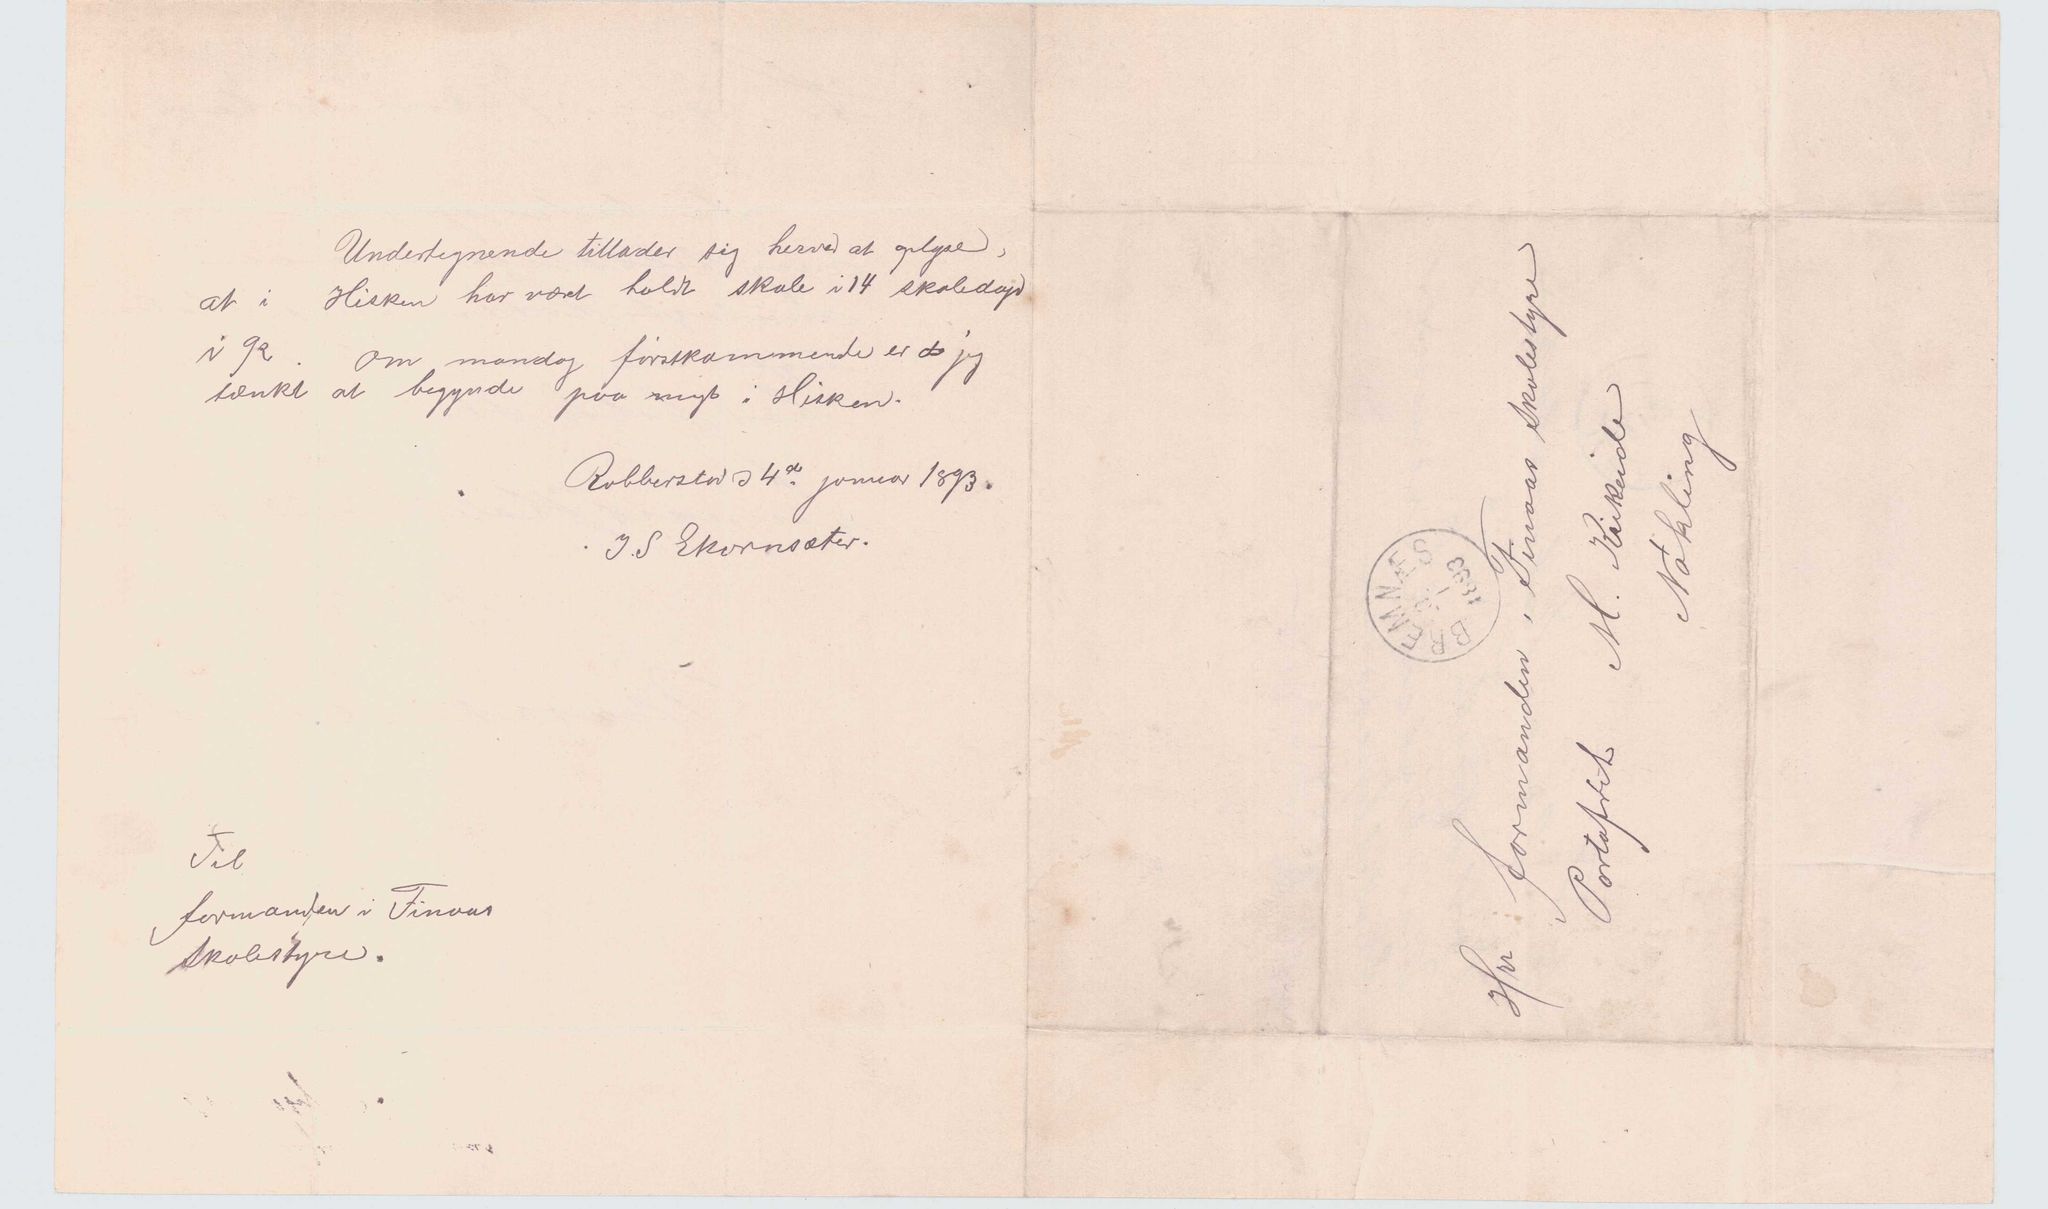 Undertegnende tillader sig herved at oplyse,
at i Hisken har vært holdt skole i 14 skoledage
i 92. Om mandag førstkommende er jeg
tænkt at begynde paa nyt i Hisken.
Robberstad 4de januar 1893.
J. S Ekornsæter.
Til
formanden i Finaas
skolestyre.
Hr formanden i Finaas skolestyre
Portofrit M. Kikeide
Nøkling
BREMNÆS
1893